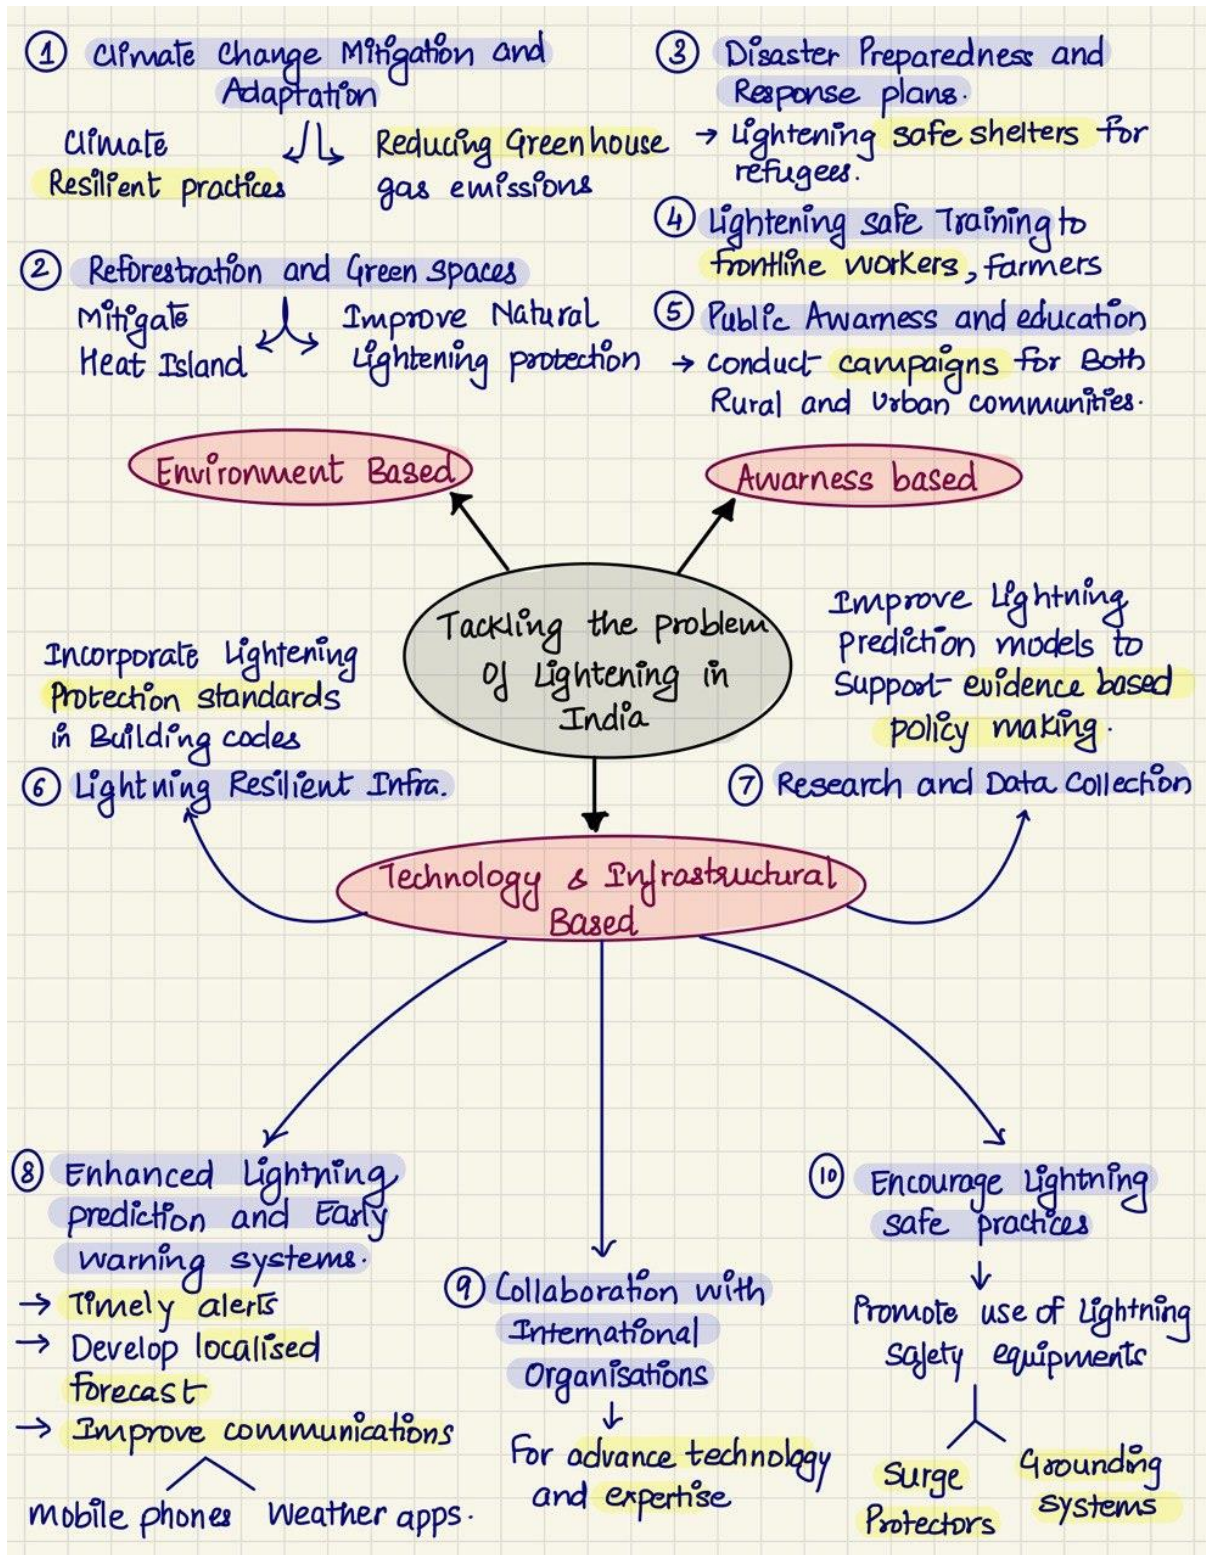 ① Climate Change Mitigation and
Adaptation
Climate
Resilient practices
Reducing Greenhouse
gas emissions
② Reforestration and Green spaces
Mitigate
Heat Island
Improve Natural
Lightening protection
③ Disaster Preparedness and
Response plans.
→ Lightening safe shelters for
refugees.
④ Lightening safe Training to
frontline workers, farmers
⑤ Public Awarness and education
→ conduct campaigns for Both
Rural and Urban communities.
Environment Based
Awarness based
Tackling the problem
Of Lightening in
India
Incorporate Lightening
Protection standards
in Building codes
⑥ Lightning Resilient Infra.
Improve Lightning
prediction models to
Support evidence based
policy making.
⑦ Research and Data Collection
Technology & Infrastructural
Based
⑧ Enhanced Lightning
prediction and Early
warning systems.
→ Timely alerts
→ Develop localised
forecast
→ Improve communications
mobile phones Weather apps.
⑨ Collaboration with
International
Organisations
For advance technology
and expertise
⑩ Encourage Lightning
safe practices
Promote use of Lightning
safety equipments
Surge
Protectors
Grounding
systems